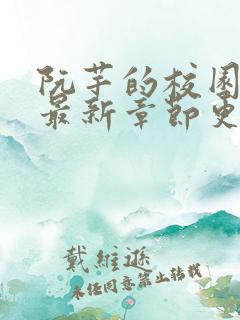 阮芋的校园
最新章節更
戴維遜
未经同意禁止转载